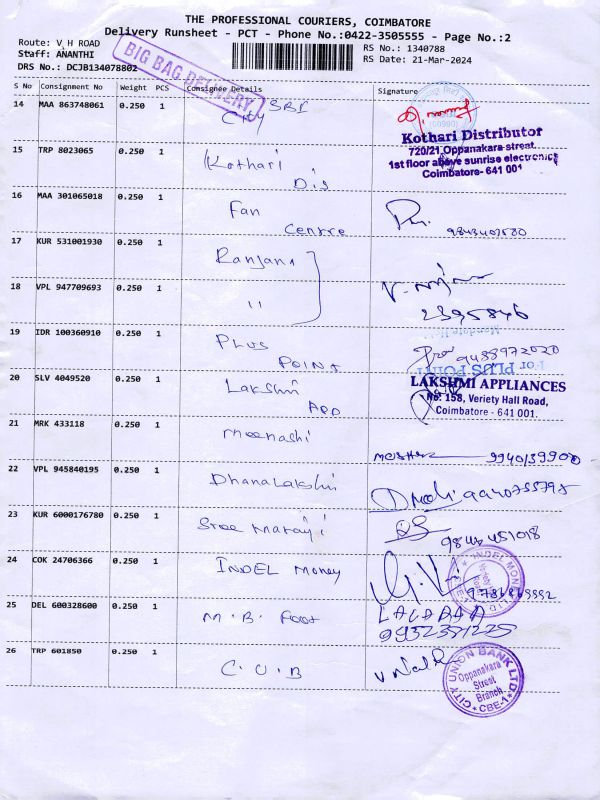 THE PROFESSIONAL COURIERS, COIMBATORE
Delivery Runsheet - PCT - Phone No.:0422-3505555 - Page No.:2
Route: V H ROAD
RS No.: 1340788
Staff: ANANTHI
RS Date: 21-Mar-2024
DRS No.: DCJB134078802
BIG BAG DELIVERY
S No Consignment No Weight PCS Consignee Details Signature
14 MAA 863748061 0.250 1 City SBI
15 TRP 8023065 0.250 1 Kothari Dis
Kothari Distributor
720/21, Oppanakara street,
1st floor above sunrise electronics
Coimbatore- 641 001
16 MAA 301065018 0.250 1 Fan Centre
17 KUR 531001930 0.250 1 Ranjana
18 VPL 947709693 0.250 1 "
2395846
19 IDR 100360910 0.250 1 PLUS POINT 9488972020
For PLUS POINT
20 SLV 4049520 0.250 1 Lakshmi App
LAKSHMI APPLIANCES
No. 158, Veriety Hall Road,
Coimbatore - 641 001.
21 MRK 433118 0.250 1 meenashi
22 VPL 945840195 0.250 1 Dhanalakshmi
23 KUR 6000176780 0.250 1 Sree
24 COK 24706366 0.250 1 INDEL Money
INDEL MONEY LTD
25 DEL 600328600 0.250 1 M.B. Foot
26 TRP 601850 0.250 1 C.U.B
CITY UNION BANK LTD.
Oppanakara
Street
Branch
CBE-1